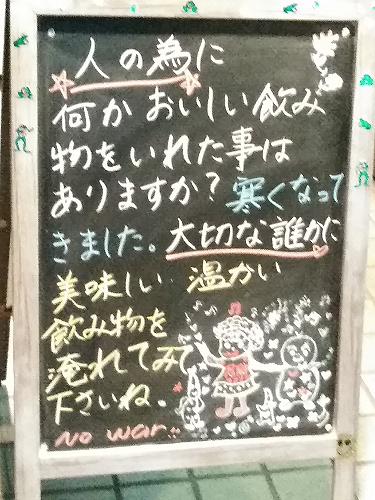 人の為に
何かおいしい飲み
物をいれた事は
ありますか？寒くなって
きました。大切な誰かに
美味しい 温かい
飲み物を
淹れてみて
下さいね。
No war..